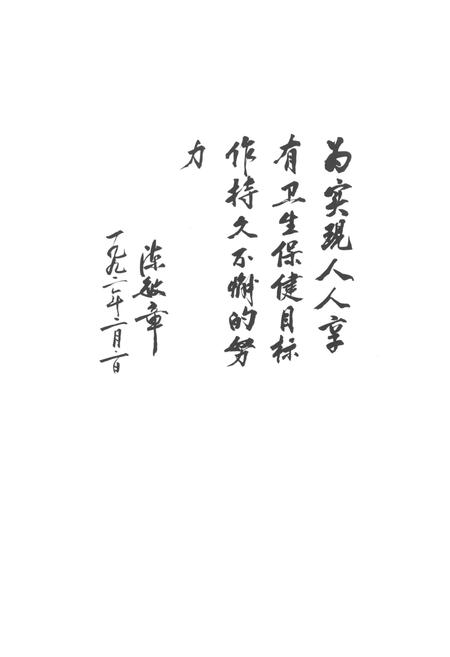 为实现人人享
有卫生保健目标
作持久不懈的努
力
陈敏章
一九九二年二月二日